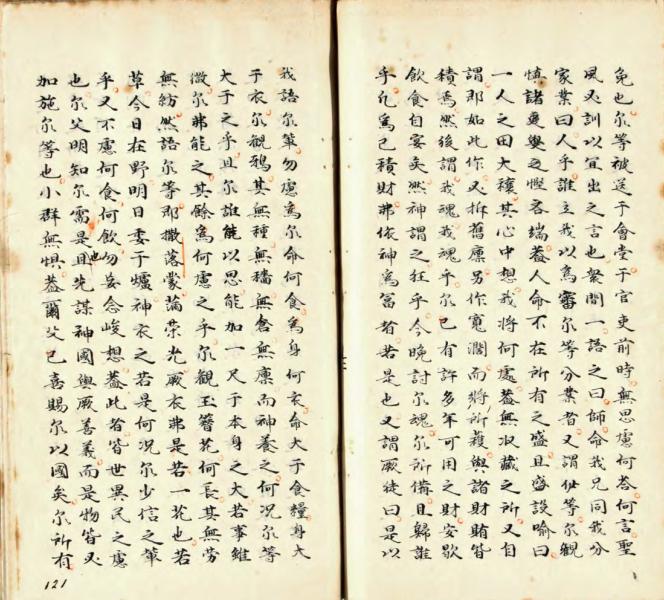 免也尔等被送于會堂于官吏前時無思慮何荅何言聖
風乃訓以宜出之言也衆間一語之曰師命我兄同我分
家業曰人乎誰立我以為審尔等分業者又謂伊等尔觀
慎諸憂與之慳吝端葢人命不在所有之盛且盛設喻曰
一人之田大穰其心中想我將何處葢無収藏之所又自
謂那如此作乂拆舊廪另作寬濶而將所穫與諸財賄皆
積焉然後謂我魂我魂乎尔已有許多年可用之財安歇
飲食自宴矣然神謂之狂乎今晚討尔魂尔所俻且歸誰
乎凢為己積財弗依神為冨者若是也又謂厥徒曰是以
我語尔軰勿慮為尔命何食為身何衣命大于食糧身大
于衣尔觀鴉其無種無穡無倉無廪而神養之何况尔等
大于之乎且尔誰能以思能加一尺于本身之大若事雖
微尔弗能之其餘為何慮之乎尔觀玉簪花何長其無勞
無紡然語尔等那撒落蒙萹荣光厥衣弗是若一花也若
草今日在野明日委于爐神衣之若是何况尔少信之軰
乎又不慮何食何飲勿妄念峻想葢此者皆世異民之慮
也尔父明知尔需是也且先謀神國與厥善義而是物皆又
加施尔等也小群無惧葢爾父已喜賜尔以國矣尔所有
121